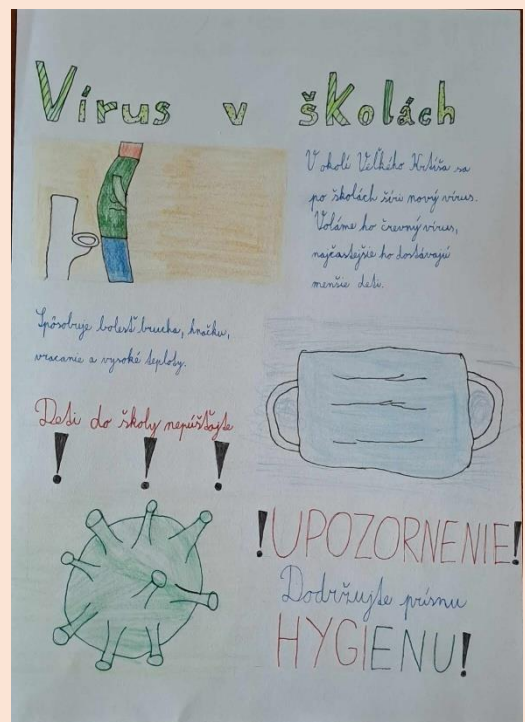 Vírus v školách
V okolí Veľkého Krtíša sa
po školách šíri nový vírus.
Voláme ho črevný vírus,
najčastejšie ho dostávajú
menšie deti.
Spôsobuje bolesť brucha, hnačku,
vracanie a vysoké teploty.
Deti do školy nepúšťajte
! ! !
!UPOZORNENIE!
Dodržujte prísnu
HYGIENU!